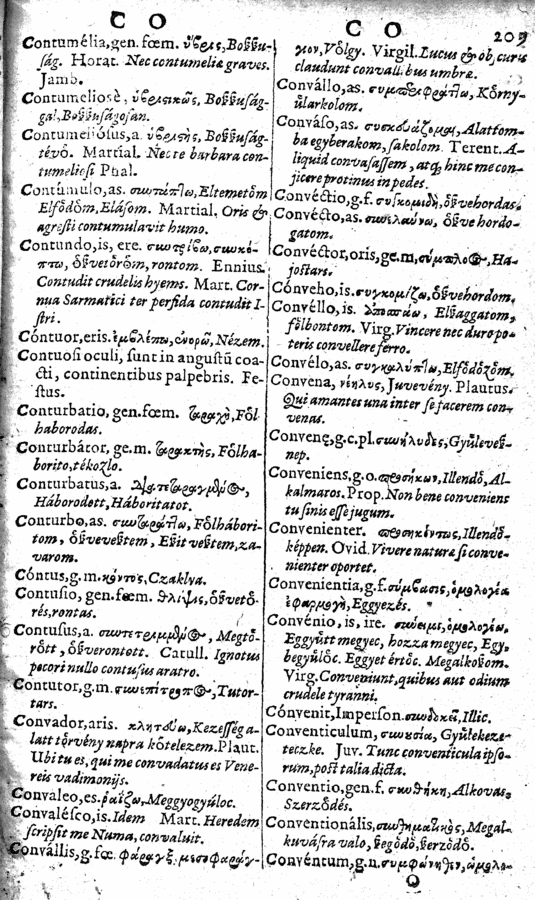 C O
Contumélia, gen. fœm. ὕβρις, Boßßu-
ság. Horat. Nec contumeliæ graves.
Jamb.
Contumeliosè, ὑβριστικῶς, Boßßuság-
gal, Boßßuságosan.
Contumeliósus, a. ὑβριστὴς, Boßßuság-
tévö. Martial. Nec te barbara con-
tumeliosi Phal.
Contúmulo, as. Eltemetöm
Elfödöm, Elásom. Martial. Oris &
agresti contumulavit humo.
Contundo, is, ere. συντρίβω, συγκό-
πτω, rontom. Ennius.
Contudit crudelis hyems. Mart. Cor-
nua Sarmatici ter perfida contudit I-
stri.
Cóntuor, eris. ἐμβλέπω, Nézem.
Contuosi oculi, sunt in angustũ coa-
cti, continentibus palpebris. Fe-
stus.
Conturbatio, gen. fœm. ταραχὴ, Föl
haborodas.
Conturbátor, ge. m. ταρακτὴς, Fölha-
borito, tékozlo.
Conturbatus, a.
Háborodott, Háboritatot.
Conturbo, as. συνταράττω, Fölhábori-
tom, za-
varom.
Cóntus, g. m. κόντος, Czaklya.
Contusio, gen. fœm. θλίψις,
rés, rontas.
Contusus, a. Megtö-
rött, Catull. Ignotus
pecori nullo contusus aratro.
Contutor, g. m. συνεπίτροπος, Tutor-
társ.
Convador, aris. Kezeſſég a-
latt törvény napra kötelezem. Plaut.
Ubi tu es, qui me convadatus es Vene-
reis vadimonijs.
Convaleo, es. ῥαΐζω, Meggyogyúloc.
Convalésco, is. Idem Mart. Heredem
scripsit me Numa, convaluit.
Convállis, g. fœ. φάραγξ, μεσοφαράγ-
C O 209
γιον, Völgy. Virgil. Lucus & ob curis
claudunt convallibus umbræ.
Convállo, as. Körny-
ülarkolom.
Convaso, as. συσκευάζομαι, Alattom-
ba egyberakom, sakolom. Terent. A-
liquid convasassem, atq; hinc me con-
jicere protinus in pedes.
Convéctio, g. f. συγκομιδὴ, hordas.
Convécto, as. συνελαύνω, hordo-
gatom.
Convéctor, oris, ge. m, Ha-
jostars.
Cónveho, is. συγκομίζω, hordom.
Convéllo, is.
fölbontom. Virg. Vincere nec duro po-
teris convellere ferro.
Convélo, as. συγκαλύπτω, Elfödözöm.
Convena, νέηλυς, Juvevény. Plautus.
Qui amantes una inter se facerem con-
venas.
Convenę, g. c. pl. συνήλυδες,
nep.
Conveniens, g. o. προσήκων, Illendö, Al-
kalmaros. Prop. Non bene conveniens
tu sinis esse jugum.
Convenienter. προσηκόντως, Illendö-
képpen. Ovid. Vivere naturæ si conve-
nienter oportet.
Convenientia, g. f. σύμβασις, ὁμολογία
ἐφαρμογὴ, Eggyezés.
Convénio, is, ire. σύνειμι, ὁμολογέω,
Eggyütt megyec, hozza megyec, Egy-
begyülöc. Eggyet értöc. Megalkoßom.
Virg. Conveniunt, quibus aut odium
crudele tyranni.
Cónvenit, Imperson. συνδοκεῖ, Illic.
Conventiculum, συνουσία, Gyülekeze-
teczke. Juv. Tunc conventicula ipso-
rum, post talia dicta.
Conventio, gen. f. συνθήκη, Alkovas,
Szerzödés.
Conventionális, συνθηματικὸς, Megal-
kuvásra valo,
Convéntum, g. n.
O